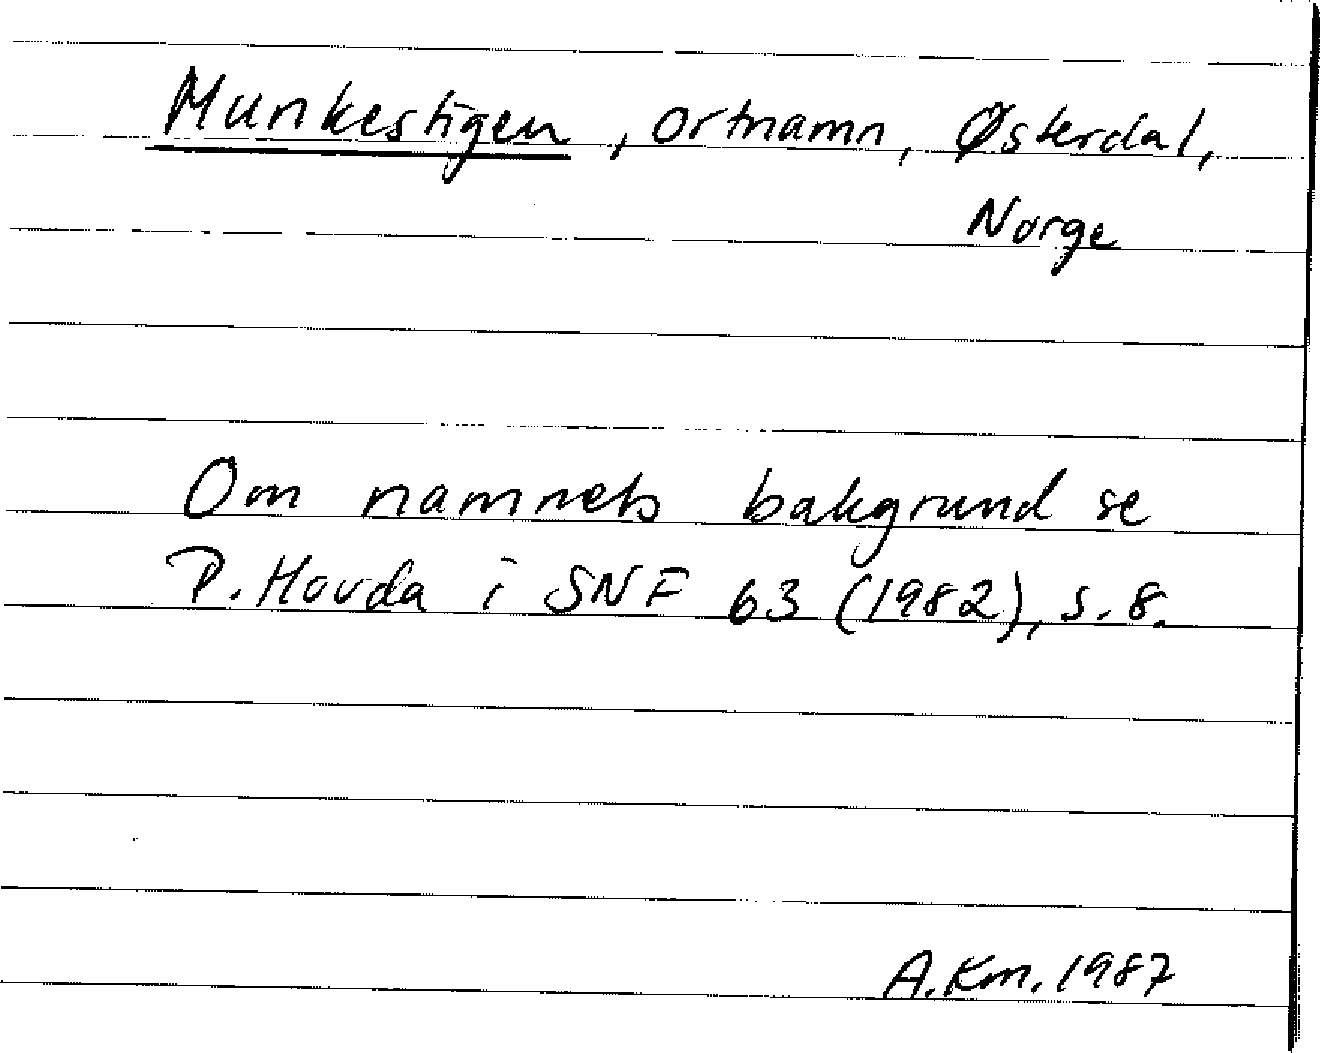 Munkestigen, ortnamn, Østerdal,
Norge
Om namnets bakgrund se
P. Hovda i SNF 63 (1982), s. 8.
A.Km. 1987